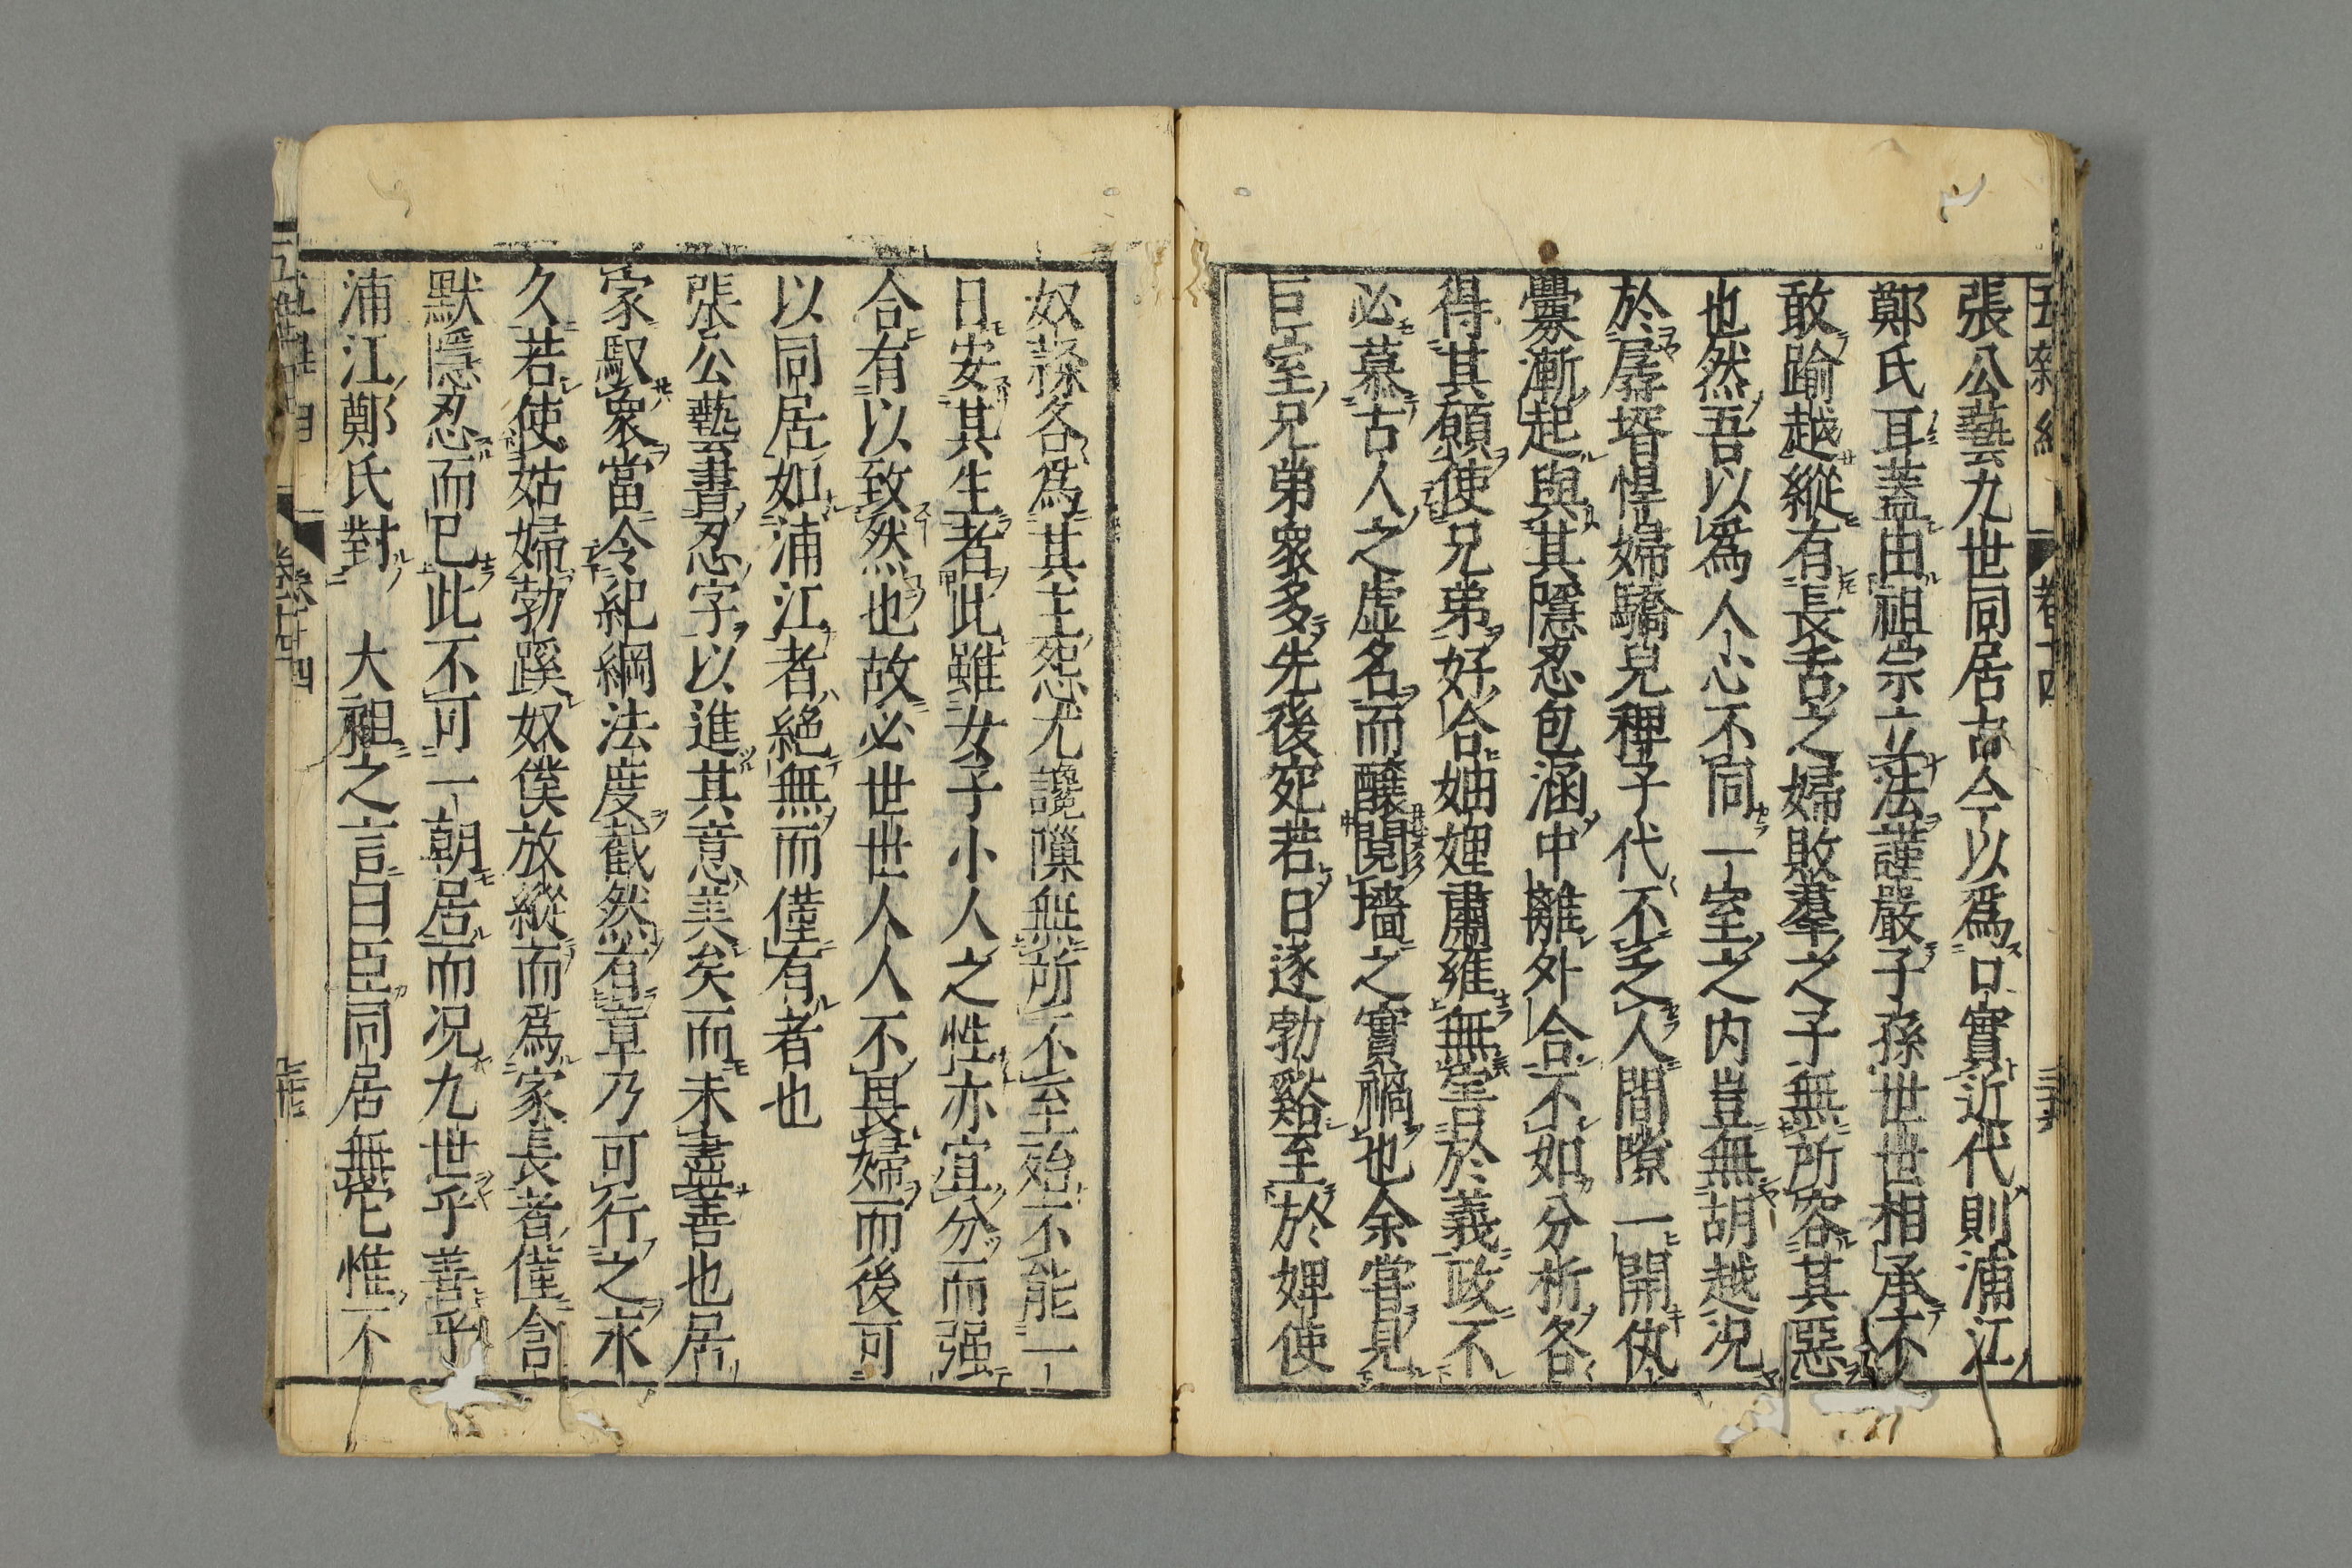 張公藝九世同居古今以爲口實近代則浦江
鄭氏耳蓋由祖宗立法謹嚴子孫世世相承不
敢踰越縱有長舌之婦敗羣之子無所容其惡
也然吾以爲人心不同一室之内豈無胡越況
於孱壻悍婦驕兒稺子代不乏人間隙一開仇
釁漸起與其隱忍包涵中離外合不如分析各
得其願使兄弟好合妯娌肅雍無害於義政不
必慕古人之虛名而釀鬩墻之實禍也余嘗見
巨室兄弟衆多先後宛若日逐勃谿至於婢使
奴隸各爲其主怨尤讒隟無所不至殆不能一
日安其生者此雖女子小人之性亦宜分而强
合有以致然也故必世世人人不畏婦而後可
以同居如浦江者絕無而僅有者也
張公藝書忍字以進其意美矣而未盡善也居
家馭衆當令紀綱法度截然有章乃可行之永
久若使姑婦勃蹊奴僕放縱而爲家長者僅含
默隱忍而已此不可一朝居而况九世乎善乎
浦江鄭氏對　大祖之言曰臣同居無它惟不